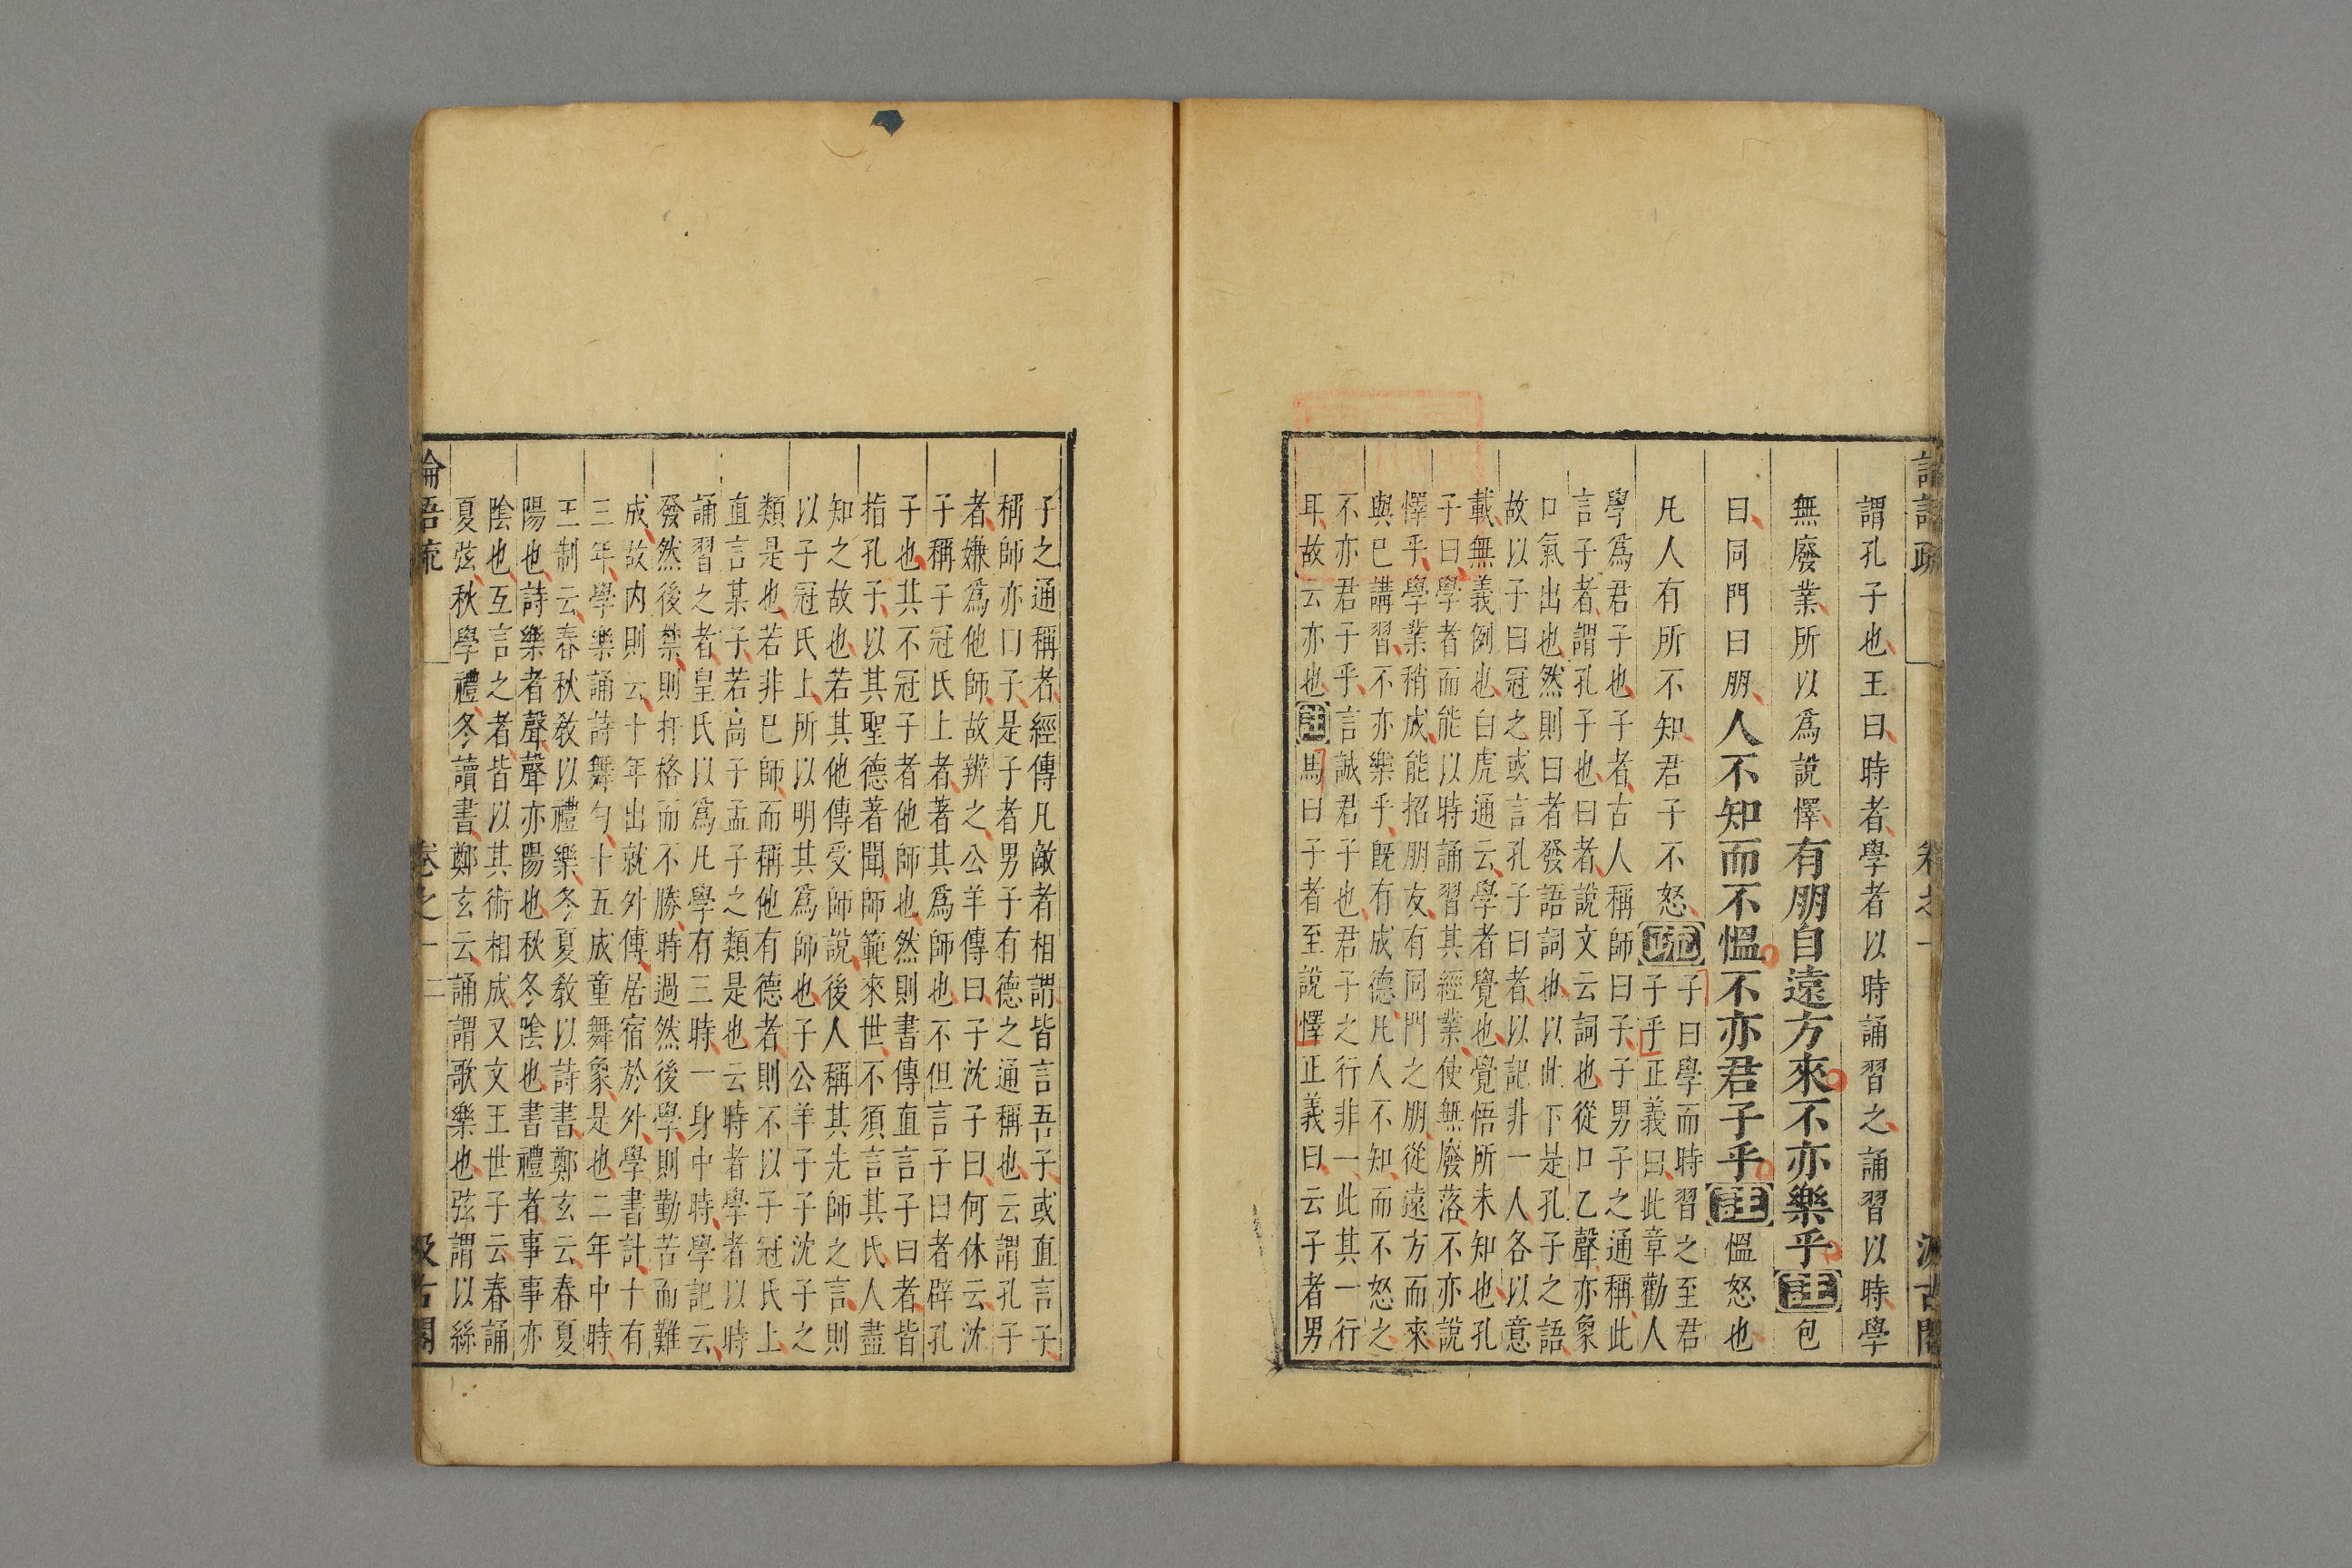 謂孔子也王曰時者學者以時誦習之誦習以時學
無廢業所以為說懌有朋自遠方來不亦樂乎註包
曰同門曰朋人不知而不慍不亦君子乎註慍怒也
凡人有所不知君子不怒疏子曰學而時習之至君
子乎正義曰此章勸人
學爲君子也子者古人稱師曰子子男子之通稱此
言子者謂孔子也曰者說文云詞也從口乙聲亦象
口氣出也然則曰者發語詞也以此下是孔子之語
故以子曰冠之或言孔子曰者以記非一人各以意
載無義例也白虎通云學者覺也覺悟所未知也孔
子曰學者而能以時誦習其經業使無廢落不亦說
懌乎學業稍成能招朋友有同門之朋從遠方而來
與巳講習不亦樂乎旣有成德凡人不知而不怒之
不亦君子乎言誠君子也君子之行非一此其一行
耳故云亦也註馬曰子者至說懌正義曰云子者男
子之通稱者經傳凡敵者相謂皆言吾子或直言子
稱師亦曰子是子者男子有德之通稱也云謂孔子
者嫌爲他師故辨之公羊傳曰子沈子曰何休云沈
子稱子冠氏上者著其爲師也不但言子曰者辟孔
子也其不冠子者他師也然則書傳直言子曰者皆
指孔子以其聖德著聞師範來世不須言其氏人盡
知之故也若其他傳受師說後人稱其先師之言則
以子冠氏上所以明其爲師也子公羊子子沈子之
類是也若非巳師而稱他有德者則不以子冠氏上
直言某子若高子孟子之類是也云時者學者以時
誦習之者皇氏以爲凡學有三時一身中時學記云
發然後禁則扞格而不勝時過然後學則勤苦而難
成故内則云十年出就外傳居宿於外學書計十有
三年學樂誦詩舞勺十五成童舞象是也二年中時
王制云春秋敎以禮樂冬夏敎以詩書鄭玄云春夏
陽也詩樂者聲聲亦陽也秋冬陰也書禮者事事亦
陰也互言之者皆以其術相成又文王世子云春誦
夏弦秋學禮冬讀書鄭玄云誦謂歌樂也弦謂以絲
論語疏 卷之一 二 汲古閣